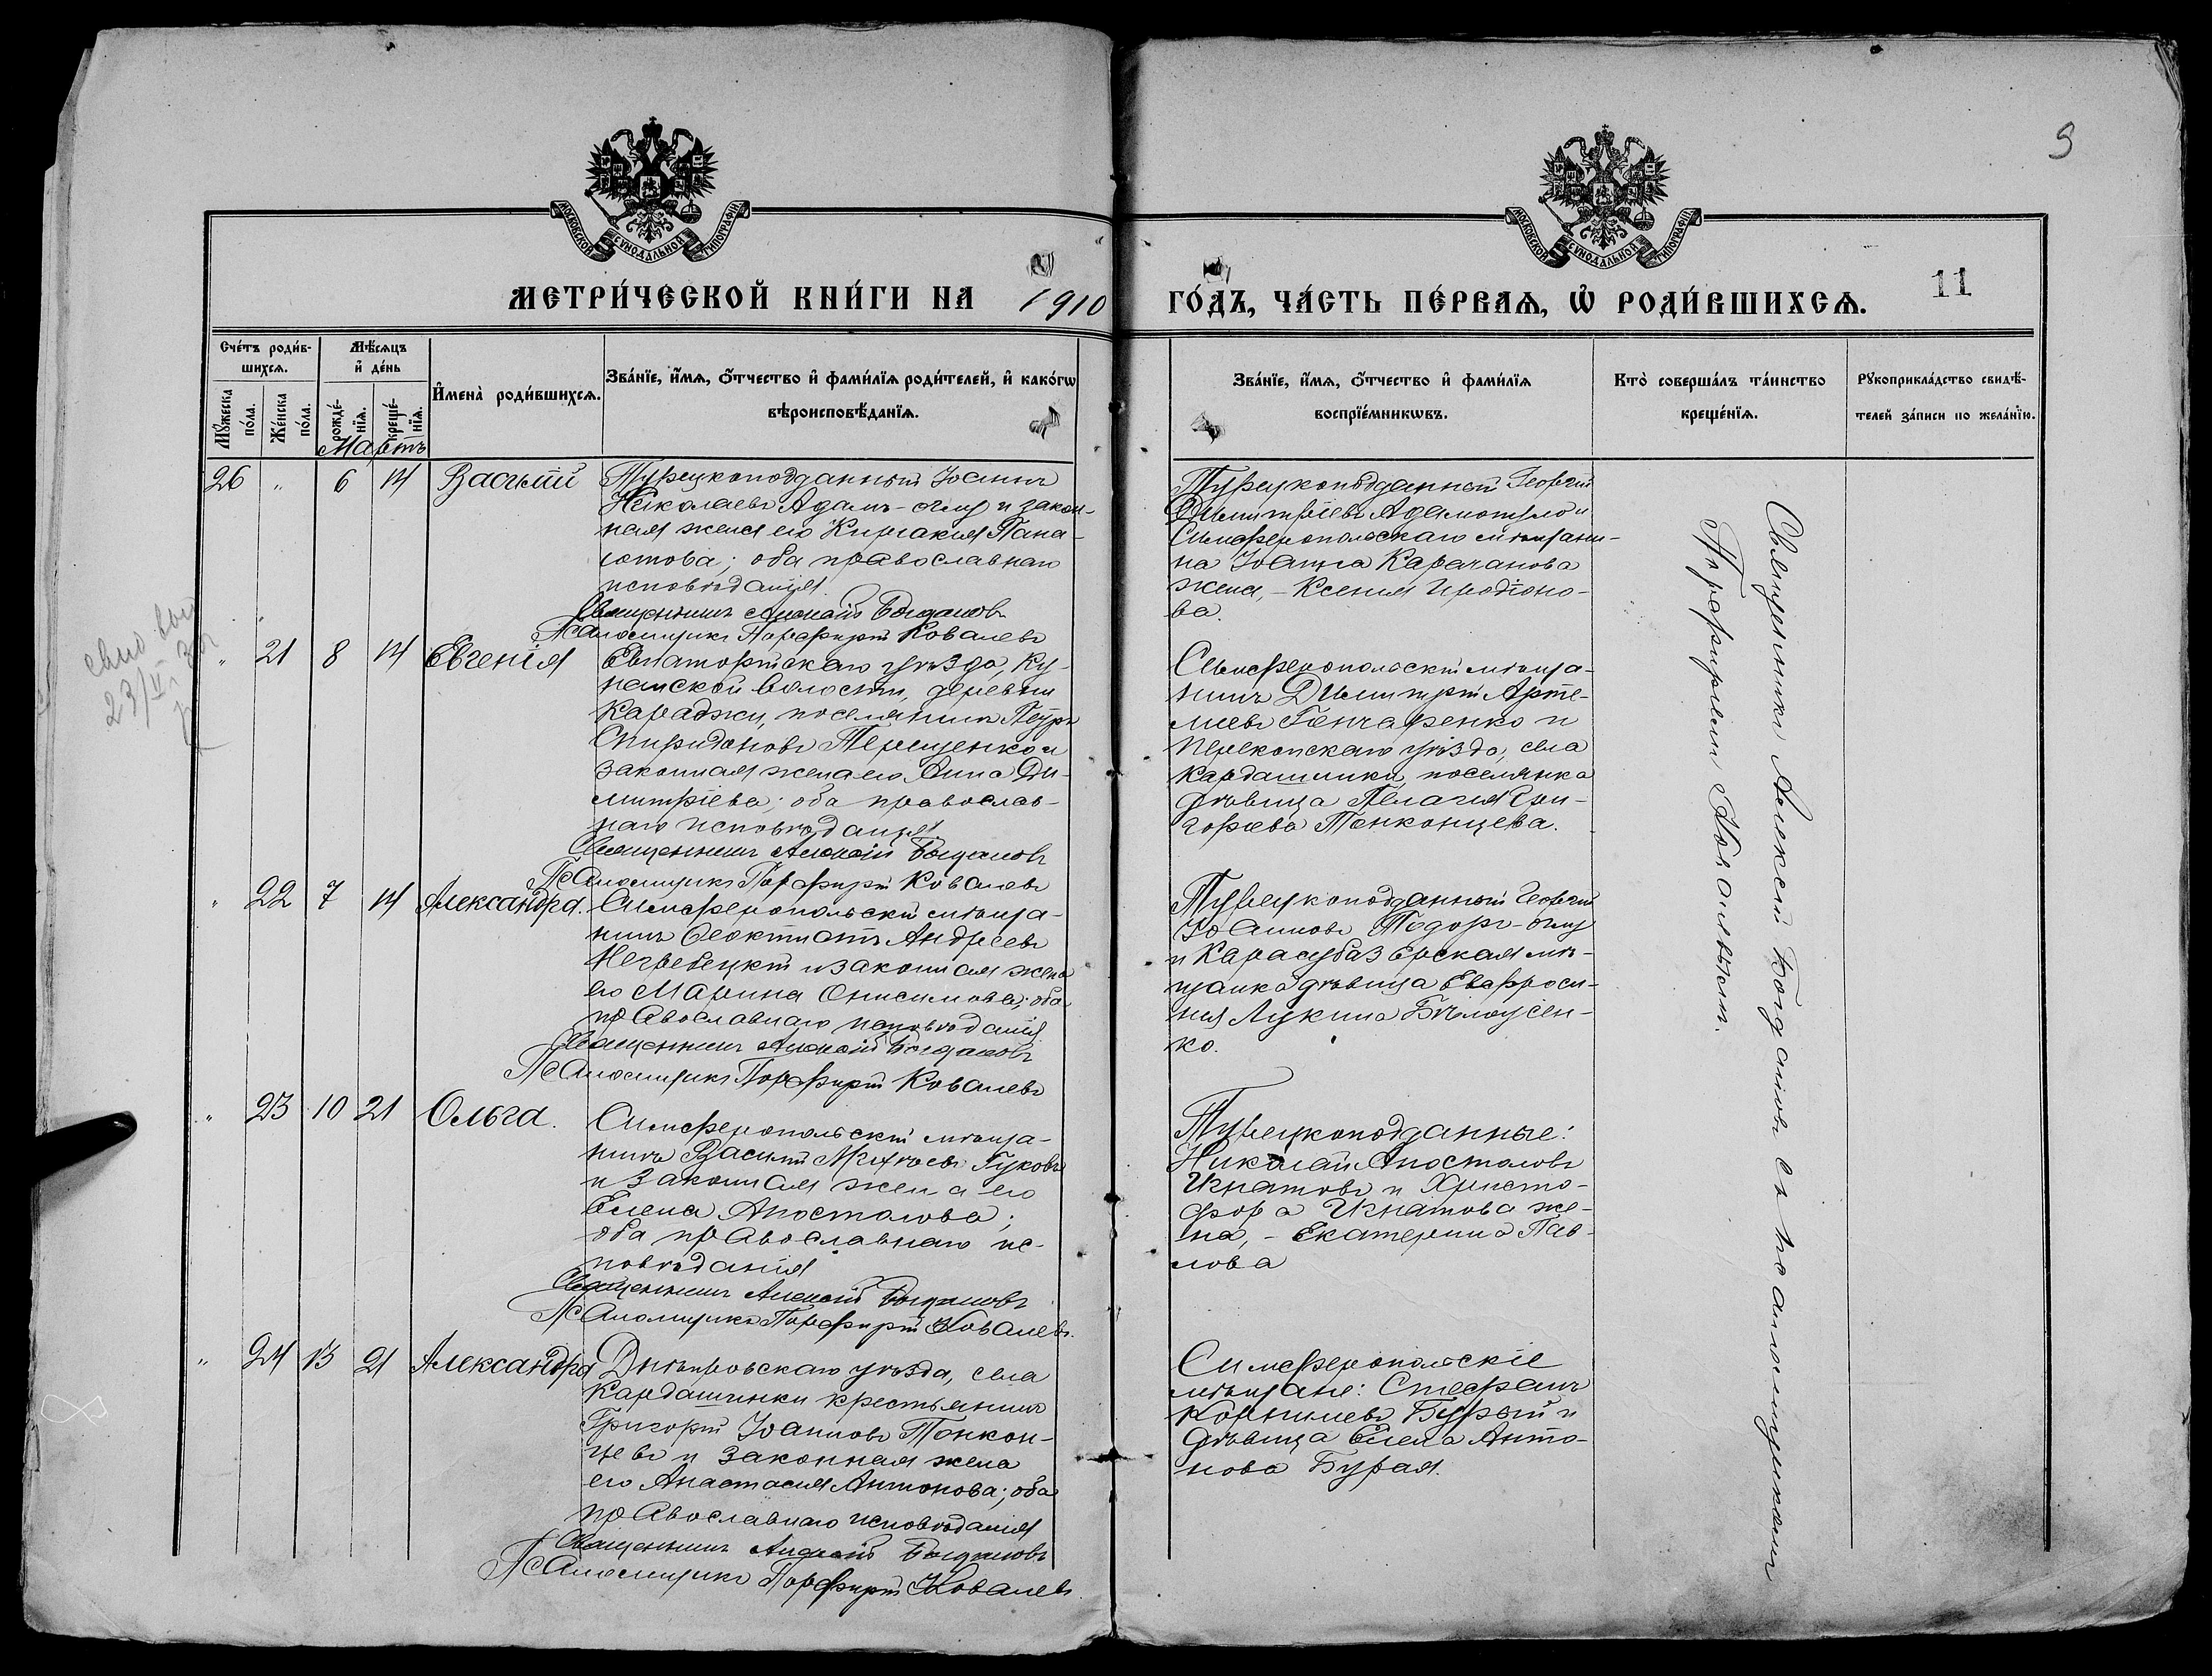 9
МОСКОВСКОЙ СѴНОДАЛЬНОЙ ТИПОГРАФІИ
МОСКОВСКОЙ СѴНОДАЛЬНОЙ ТИПОГРАФІИ
МЕТРИ́ЧЕСКОЙ КНИ́ГИ НА 1910
ГО́ДЪ, ЧА́СТЬ ПЕ́РВАѦ, Ѡ РОДИ́ВШИХСѦ.
11
Сче́тъ роди́в-
шихсѧ.
Мꙋ́жеска
по́ла.
Же́нска
по́ла.
Мѣ́сѧцъ
и҆ де́нь
рожде́-
нїѧ.
креще́-
нїѧ.
И҆мена̀ роди́вшихсѧ.
Зва́нїе, и҆́мѧ, ѻ҆́тчество и҆ фами́лїѧ роди́телей, и҆ како́гѡ
вѣроисповѣ́данїѧ.
Зва́нїе, и҆́мѧ, ѻ҆́тчество и҆ фами́лїѧ
воспрїе́мникѡвъ.
Кто̀ соверша́лъ та́инство
креще́нїѧ.
Рꙋкоприкла́дство свидѣ́-
телей за́писи по жела́нїю.
Мартъ
26 " 6 14 Василій
Турецкоподданный Іоаннъ
Николаевъ Адамъ-оглу и закон-
ная жена его Киріакія Пана-
іотова; оба православнаго
исповѣданія.
Священникъ Алексій Богдановъ
Псаломщикъ Порфирій Ковалевъ
Турецкоподданный Георгій
Димитріевъ Адамогуло и
Симферопольскаго мѣщани-
на Іоанна Карачанова
жена, - Ксенія Иродіоно-
ва.
" 21 8 14 Евгенія
Евпаторійскаго уѣзда, Ку-
наиской волости, деревни
Караджи, поселянинъ Петръ
Спиридоновъ Терещенко и
законная жена его Анна Ди-
митріева; оба православ-
наго исповѣданія.
Священникъ Алексій Богдановъ
Псаломщикъ Порфирій Ковалевъ
Симферопольскій мѣща-
нинъ Димитрій Арте-
міевъ Гончаренко и
Перекопскаго уѣзда, села
Кардашинки, поселянка
дѣвица Пелагія Гри-
горіева Тонконцева.
" 22 7 14 Александра.
Симферопольскій мѣща-
нинъ Ѳеоктистъ Андреевъ
Негребецкій и законная жена
его Марина Онисимова; оба
православнаго исповѣданія
Священникъ Алексій Богдановъ
Псаломщикъ Порфирій Ковалевъ
Турецкоподданный Георгій
Іоанновъ Тодоръ-оглу
и Карасубазарская мѣ-
щанка дѣвица Евфроси-
нія Лукина Бѣлоусен-
ко.
" 23 10 21 Ольга.
Симферопольскій мѣща-
нинъ Василій Михѣевъ Гуковъ
и законная жена его
Елена Апостолова;
оба православнаго ис-
повѣданія
Священникъ Алексій Богдановъ
Псаломщикъ Порфирій Ковалевъ.
Турецкоподданные:
Николай Апостоловъ
Игнатовъ и Христо-
фора Игнатова же-
на, - Екатерина Пав-
лова
" 24 13 21 Александра
Днѣпровскаго уѣзда, села
Кардашинки крестьянинъ
Григорій Іоанновъ Тонкон-
цевъ и законная жена
его Анастасія Антонова; оба
православнаго исповѣданія
Священникъ Алексій Богдановъ
Псаломщикъ Порфирій Ковалевъ.
Симферопольскіе
мѣщане: Стефанъ
Корниліевъ Бурый и
дѣвица Елена Анто-
нова Бурая.
Священникъ Алексій Богдановъ съ псаломщикомъ
Порфиріемъ Ковалевымъ.